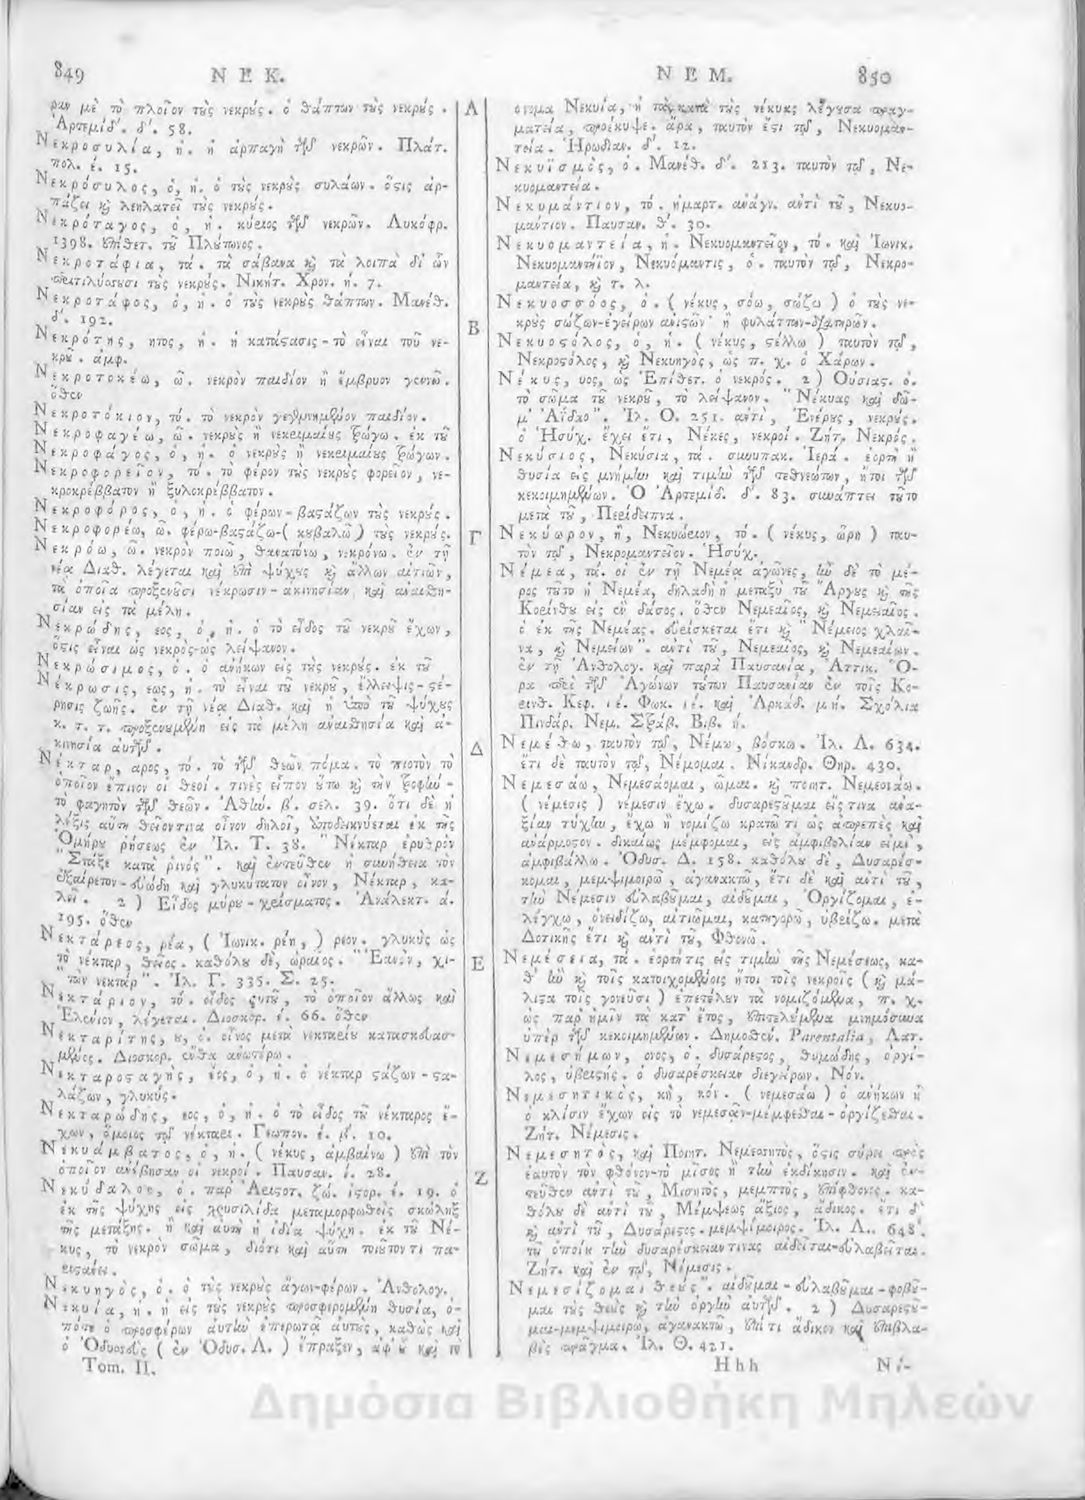 849 Ν Ε Κ.
ραν μὲ τὸ πλοῖον τοὺς νεκρούς. ὁ θάπτων τοὺς νεκρούς.
Ἀρτεμίδ. δ'. 58.
Νεκροσυλία, ἡ. ἡ ἁρπαγὴ τῶν νεκρῶν. Πλάτ.
πολ. έ. 15.
Νεκρόσυλος, ὁ, ἡ. ὁ τοὺς νεκροὺς συλάων. ὅστις ἁρ-
πάζει καὶ λεηλατεῖ τοὺς νεκρούς.
Νεκρόταγος, ὁ, ἡ. κύριος τῶν νεκρῶν. Λυκόφρ.
1398. ἐπίθετ. τοῦ Πλούτωνος.
Νεκροτάφια, τά. τὰ σάβανα καὶ τὰ λοιπὰ δι' ὧν
περιτυλίσσουσι τοὺς νεκρούς. Νικήτ. Χρον. ή. 7.
Νεκροτάφος, ὁ, ἡ. ὁ τοὺς νεκροὺς θάπτων. Μανέθ.
δ'. 192.
Νεκρότης, ητος, ἡ. ἡ κατάστασις-τὸ εἶναι τοῦ νε-
κροῦ. ἀμφ.
Νεκροτοκέω, ῶ. νεκρὸν παιδίον ἢ ἔμβρυον γεννῶ.
ὅθεν
Νεκροτόκιον, τό. τὸ νεκρὸν γεγεννημένον παιδίον.
Νεκροφαγέω, ῶ. νεκροὺς ἢ νεκειμαίους τρώγω. ἐκ τοῦ
Νεκροφάγος, ὁ, ἡ. ὁ νεκροὺς ἢ νεκειμαίους τρώγων.
Νεκροφορεῖον, τό. τὸ φέρον τοὺς νεκροὺς φορεῖον, νε-
κροκρέββατον ἢ ξυλοκρέββατον.
Νεκροφόρος, ὁ, ἡ. ὁ φέρων-βαστάζων τοὺς νεκρούς.
Νεκροφορέω, ῶ. φέρω-βαστάζω-(κουβαλῶ) τοὺς νεκρούς.
Νεκρόω, ῶ. νεκρὸν ποιῶ, θανατόνω, νεκρόνω. ἐν τῇ
νέᾳ Διαθ. λέγεται καὶ ἐπὶ ψύχους καὶ ἄλλων αἰτιῶν,
τὰ ὁποῖα προξενοῦσι νέκρωσιν-ἀκινησίαν καὶ ἀναισθη-
σίαν εἰς τὰ μέλη.
Νεκρώδης, εος, ὁ, ἡ. ὁ τὸ εἶδος τοῦ νεκροῦ ἔχων,
ὅστις εἶναι ὡς νεκρὸς-ὡς λείψανον.
Νεκρώσιμος, ὁ. ὁ ἀνήκων εἰς τοὺς νεκρούς. ἐκ τοῦ
Νέκρωσις, εως, ἡ. τὸ εἶναι τοῦ νεκροῦ, ἔλλειψις-στέ-
ρησις ζωῆς. ἐν τῇ νέᾳ Διαθ. καὶ ἡ ὑπὸ τοῦ ψύχους
κ. τ. τ. προξενουμένη εἰς τὰ μέλη ἀναισθησία καὶ ἀ-
κινησία αὐτῶν.
Νέκταρ, αρος, τό. τὸ τῶν θεῶν πόμα. τὸ πιοτὸν τὸ
ὁποῖον ἔπινον οἱ θεοί. τινὲς εἶπον οὕτω καὶ τὴν τροφὴν-
τὸ φαγητὸν τῶν θεῶν. Ἀθήν. β'. σελ. 39. ὅτι δὲ ἡ
λέξις αὕτη θεῖόν τινα οἶνον δηλοῖ, ὑποδεικνύεται ἐκ τῆς
Ὁμήρου ῥήσεως ἐν Ἰλ. Τ. 38. "Νέκταρ ἐρυθρὸν
"Στάξε κατὰ ῥινός". καὶ ἐντεῦθεν ἡ συνήθεια τὸν
ἐξαίρετον-εὐώδη καὶ γλυκύτατον οἶνον, Νέκταρ, κα-
λεῖ. 2) Εἶδος μύρου-χρίσματος. Ἀνάλεκτ. ά.
195. ὅθεν
Νεκτάρεος, ρέα, (Ἰωνικ. ρέη,) ρεον. γλυκὺς ὡς
τὸ νέκταρ, θεῖος. καθόλου δὲ, ὡραῖος. "Ἑανὸν, χι-
"τῶν νεκταρ". Ἰλ. Γ. 335. Σ. 25.
Νεκτάριον, τό. εἶδος φυτοῦ, τὸ ὁποῖον ἄλλως καὶ
Ἑλένιον, λέγεται. Διοσκορ. έ. 66. ὅθεν
Νεκταρίτης, ου, ὁ. οἶνος μετὰ νεκταρίου κατασκευασ-
μένος. Διοσκορ. ἔνθα ἀνωτέρω.
Νεκταροσταγὴς, έος, ὁ, ἡ. ὁ νέκταρ στάζων-στα-
λάζων, γλυκύς.
Νεκταρώδης, εος, ὁ, ἡ. ὁ τὸ εἶδος τοῦ νέκταρος ἔ-
χων, ὅμοιος τῷ νέκταρι. Γεωπον. έ. β'. 10.
Νεκυάμβατος, ὁ, ἡ. (νέκυς, ἀμβαίνω) ἐπὶ τὸν
ὁποῖον ἀνέβησαν οἱ νεκροί. Παυσαν. ί. 28.
Νεκύδαλος, ὁ. παρ' Ἀριστοτ. ζώ. ἱστορ. έ. 19. ὁ
ἐκ τῆς ψύχης εἰς χρυσιλίδα μεταμορφωθεὶς σκώληξ
τῆς μετάξης. ἢ καὶ αὐτὴ ἡ ἰδία ψυχή. ἐκ τοῦ Νέ-
κυς, τὸ νεκρὸν σῶμα, διότι καὶ αὕτη τοιοῦτόν τι πα-
ριστάνει.
Νεκυηγὸς, ὁ. ὁ τοὺς νεκροὺς ἄγων-φέρων. Ἀνθολογ.
Νεκυία, ἡ. ἡ εἰς τοὺς νεκροὺς προσφερομένη θυσία, ὁ-
πότε ὁ προσφέρων αὐτὴν ἐπερωτᾷ αὐτοὺς, καθὼς καὶ
ὁ Ὀδυσσεὺς (ἐν Ὀδυσ. Λ.) ἔπραξεν, ἀφ' οὗ καὶ τὸ
Tom. II.
Α
Β
Γ
Δ
Ε
Ζ
Ν Ε Μ. 850
ὄνομα Νεκυία, ἡ τὰ κατὰ τοὺς νέκυας λέγουσα πραγ-
ματεία, προέκυψε. ἄρα, ταυτόν ἐστι τῷ, Νεκυομαν-
τεία. Ἡρωδιαν. δ'. 12.
Νεκυϊσμὸς, ὁ. Μανέθ. δ'. 213. ταυτὸν τῷ, Νε-
κυομαντεία.
Νεκυμάντιον, τό. ἡμαρτ. ἀνάγν. ἀντὶ τοῦ, Νεκυο-
μάντιον. Παυσαν. θ'. 30.
Νεκυομαντεία, ἡ. Νεκυομαντεῖον, τό. καὶ Ἰωνικ.
Νεκυομαντήϊον, Νεκυόμαντις, ὁ. ταυτὸν τῷ, Νεκρο-
μαντεία, καὶ τ. λ.
Νεκυοσσόος, ὁ. (νέκυς, σόω, σώζω) ὁ τοὺς νε-
κροὺς σώζων-ἐγείρων ἀνιστῶν ἢ φυλάττων-διατηρῶν.
Νεκυοστόλος, ὁ, ἡ. (νέκυς, στέλλω) ταυτὸν τῷ,
Νεκροστόλος, καὶ Νεκυηγὸς, ὡς π. χ. ὁ Χάρων.
Νέκυς, υος, ὡς Ἐπίθετ. ὁ νεκρός. 2) Οὐσιας. ὁ.
τὸ σῶμα τοῦ νεκροῦ, τὸ λείψανον. "Νέκυας καὶ δῶ-
μ' Ἀΐδαο". Ἰλ. Ο. 251. ἀντὶ, Ἐνέρους, νεκρούς.
ὁ Ἡσύχ. ἔχει ἔτι, Νέκες, νεκροί. Ζήτ. Νεκρός.
Νεκύσιος, Νεκύσια, τά. συνυπακ. Ἱερά. ἑορτὴ ἢ
θυσία εἰς μνήμην καὶ τιμὴν τῶν τεθνεώτων, ἤτοι τῶν
κεκοιμημένων. Ὁ Ἀρτεμίδ. δ'. 83. συνάπτει τοῦτο
μετὰ τοῦ, Περίδειπνα.
Νεκύωρον, ἢ, Νεκυώριον, τό. (νέκυς, ὥρη) ταυ-
τὸν τῷ, Νεκρομαντεῖον. Ἡσύχ.
Νέμεα, τά. οἱ ἐν τῇ Νεμέᾳ ἀγῶνες, ἦν δὲ τὸ μέ-
ρος τοῦτο ἡ Νεμέα, δηλαδὴ ἡ μεταξὺ τοῦ Ἄργους καὶ τῆς
Κορίνθου εἰς ἓν δάσος. ὅθεν Νεμεαῖος, καὶ Νεμειαῖος.
ὁ ἐκ τῆς Νεμέας. εὑρίσκεται ἔτι καὶ "Νέμειος χλαῖ-
να, καὶ Νεμείων". ἀντὶ τοῦ, Νεμεαῖος, καὶ Νεμεαίων.
ἐν τῇ Ἀνθολογ. καὶ παρὰ Παυσανία, Ἀττικ. Ὅ-
ρα περὶ τῶν Ἀγώνων τούτων Παυσανίαν ἐν τοῖς Κο-
ρινθ. Κεφ. ιέ. Φωκ. ιέ. καὶ Ἀρκαδ. μή. Σχόλια
Πινδάρ. Νεμ. Στράβ. Βιβ. ή.
Νεμέθω, ταυτὸν τῷ, Νέμω, βόσκω. Ἰλ. Λ. 634.
ἔτι δὲ ταυτὸν τῷ, Νέμομαι. Νίκανδρ. Θηρ. 430.
Νεμεσάω, Νεμεσάομαι, ῶμαι. καὶ ποιητ. Νεμεσσάω.
(νέμεσις) νέμεσιν ἔχω. δυσαρεστοῦμαι εἴς τινα ἀνα-
ξίαν τύχην, ἔχω ἢ νομίζω κρατῶ τι ὡς ἀπρεπὲς καὶ
ἀνάρμοστον. δικαίως μέμφομαι, εἰς ἀμφιβολίαν εἰμὶ,
ἀμφιβάλλω. Ὀδυσ. Δ. 158. καθόλου δὲ, Δυσαρέσ-
κομαι, μεμψιμοιρῶ, ἀγανακτῶ, ἔτι δὲ καὶ ἀντὶ τοῦ,
τὴν Νέμεσιν εὐλαβοῦμαι, αἰδοῦμαι, Ὀργίζομαι, ἐ-
λέγχω, ὀνειδίζω, αἰτιῶμαι, κατηγορῶ, ὑβρίζω. μετὰ
Δοτικῆς ἔτι καὶ ἀντὶ τοῦ, Φθονῶ.
Νεμέσεια, τά. ἑορτή τις εἰς τιμὴν τῆς Νεμέσεως, κα-
θ' ἣν καὶ τοῖς κατοιχομένοις ἤτοι τοῖς νεκροῖς (καὶ μά-
λιστα τοῖς γονεῦσι) ἐπετέλουν τὰ νομιζόμενα, π. χ.
ὡς παρ' ἡμῖν τὰ κατ' ἔτος, ἐπιτελούμενα μνημόσυνα
ὑπὲρ τῶν κεκοιμημένων. Δημοσθέν. Parentalia, Λατ.
Νεμεσήμων, ονος, ὁ. δυσάρεστος, θυμώδης, ὀργί-
λος, ὑβριστής. ὁ δυσαρέσκειαν διεγείρων. Νόν.
Νεμεσητικὸς, κὴ, κόν. (νεμεσάω) ὁ ἀνήκων ἢ
ὁ κλίσιν ἔχων εἰς τὸ νεμεσᾶν-μέμφεσθαι-ὀργίζεσθαι.
Ζήτ. Νέμεσις.
Νεμεσητὸς, καὶ Ποιητ. Νεμεσσητὸς, ὅστις σύρει πρὸς
ἑαυτὸν τὸν φθόνον-τὸ μῖσος ἢ τὴν ἐκδίκησιν. καὶ ἐν-
τεῦθεν ἀντὶ τοῦ, Μισητὸς, μεμπτὸς, ἐπίφθονος. κα-
θόλου δὲ ἀντὶ τοῦ, Μέμψεως ἄξιος, ἄδικος. ἔτι δ'
καὶ ἀντὶ τοῦ, Δυσάρεστος. μεμψίμοιρος. Ἰλ. Λ. 648.
τοῦ ὁποίου τὴν δυσαρέσκειάν τινας αἰδεῖται-εὐλαβεῖται.
Ζήτ. καὶ ἐν τῷ, Νέμεσις.
Νεμεσίζομαι θεούς". αἰδοῦμαι-εὐλαβοῦμαι-φοβοῦ-
μαι τοὺς θεοὺς καὶ τὴν ὀργὴν αὐτῶν. 2) Δυσαρεστοῦ-
μαι-μεμψιμοιρῶ, ἀγανακτῶ, ἐπί τι ἄδικον καὶ ἐπιβλα-
βὲς πρᾶγμα. Ἰλ. Θ. 421.
Hhh Νέ-
Δημόσια Βιβλιοθήκη Μηλεών